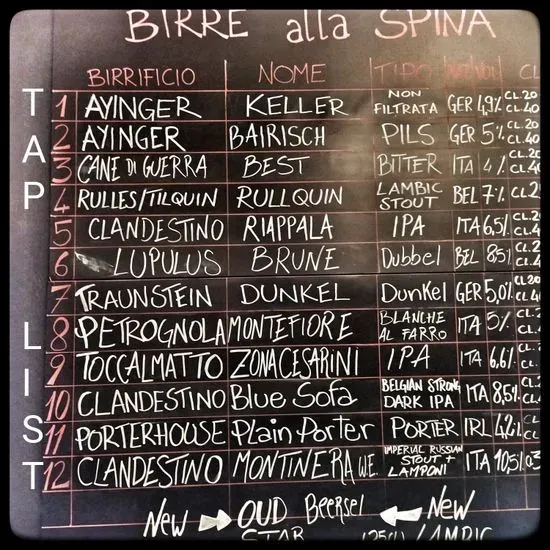 BIRRE alla SPINA
TAP LIST
BIRRIFICIO NOME TIPO CL
1 AYINGER KELLER NON FILTRATA GER 4,9% CL.20 CL.40
2 AYINGER BAIRISCH PILS GER 5% CL.20 CL.40
3 CANE DI GUERRA BEST BITTER ITA 4% CL.20 CL.40
4 RULLES/TILQUIN RULLQUIN LAMBIC STOUT BEL 7% CL.2
5 CLANDESTINO RIAPPALA IPA ITA 6,5% CL.2 CL.4
6 LUPULUS BRUNE Dubbel BEL 8,5% CL.2 CL.4
7 TRAUNSTEIN DUNKEL Dunkel GER 5,0% CL.2 CL.4
8 PETROGNOLA MONTEFIORE BLANCHE AL FARRO ITA 5% CL. CL.
9 TOCCALMATTO ZONACESARINI IPA ITA 6,6% CL. CL.
10 CLANDESTINO Blue Sofa BELGIAN STRONG DARK IPA ITA 8,5% CL. CL.
11 PORTERHOUSE Plain Porter PORTER IRL 4,2% CL. CL.
12 CLANDESTINO MONTINERA W.E. IMPERIAL RUSSIAN STOUT + LAMPONI ITA 10,5%
New OUD Beersel New